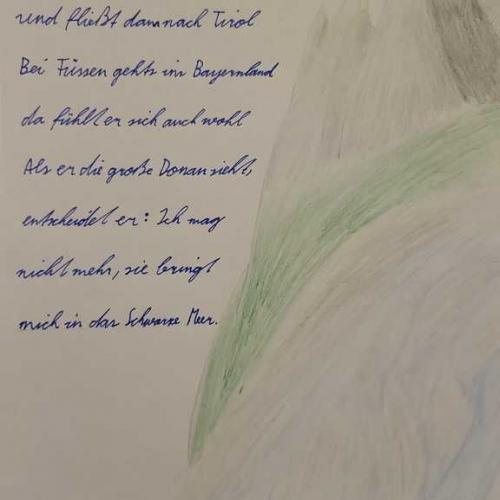 und fließt dannach Tirol
Bei Füssen gehts ins Bayernland
da fühlt er sich auch wohl
Als er die große Donau sieht,
entscheidet er: Ich mag
nicht mehr, sie bringt
mich in das Schwarze Meer.